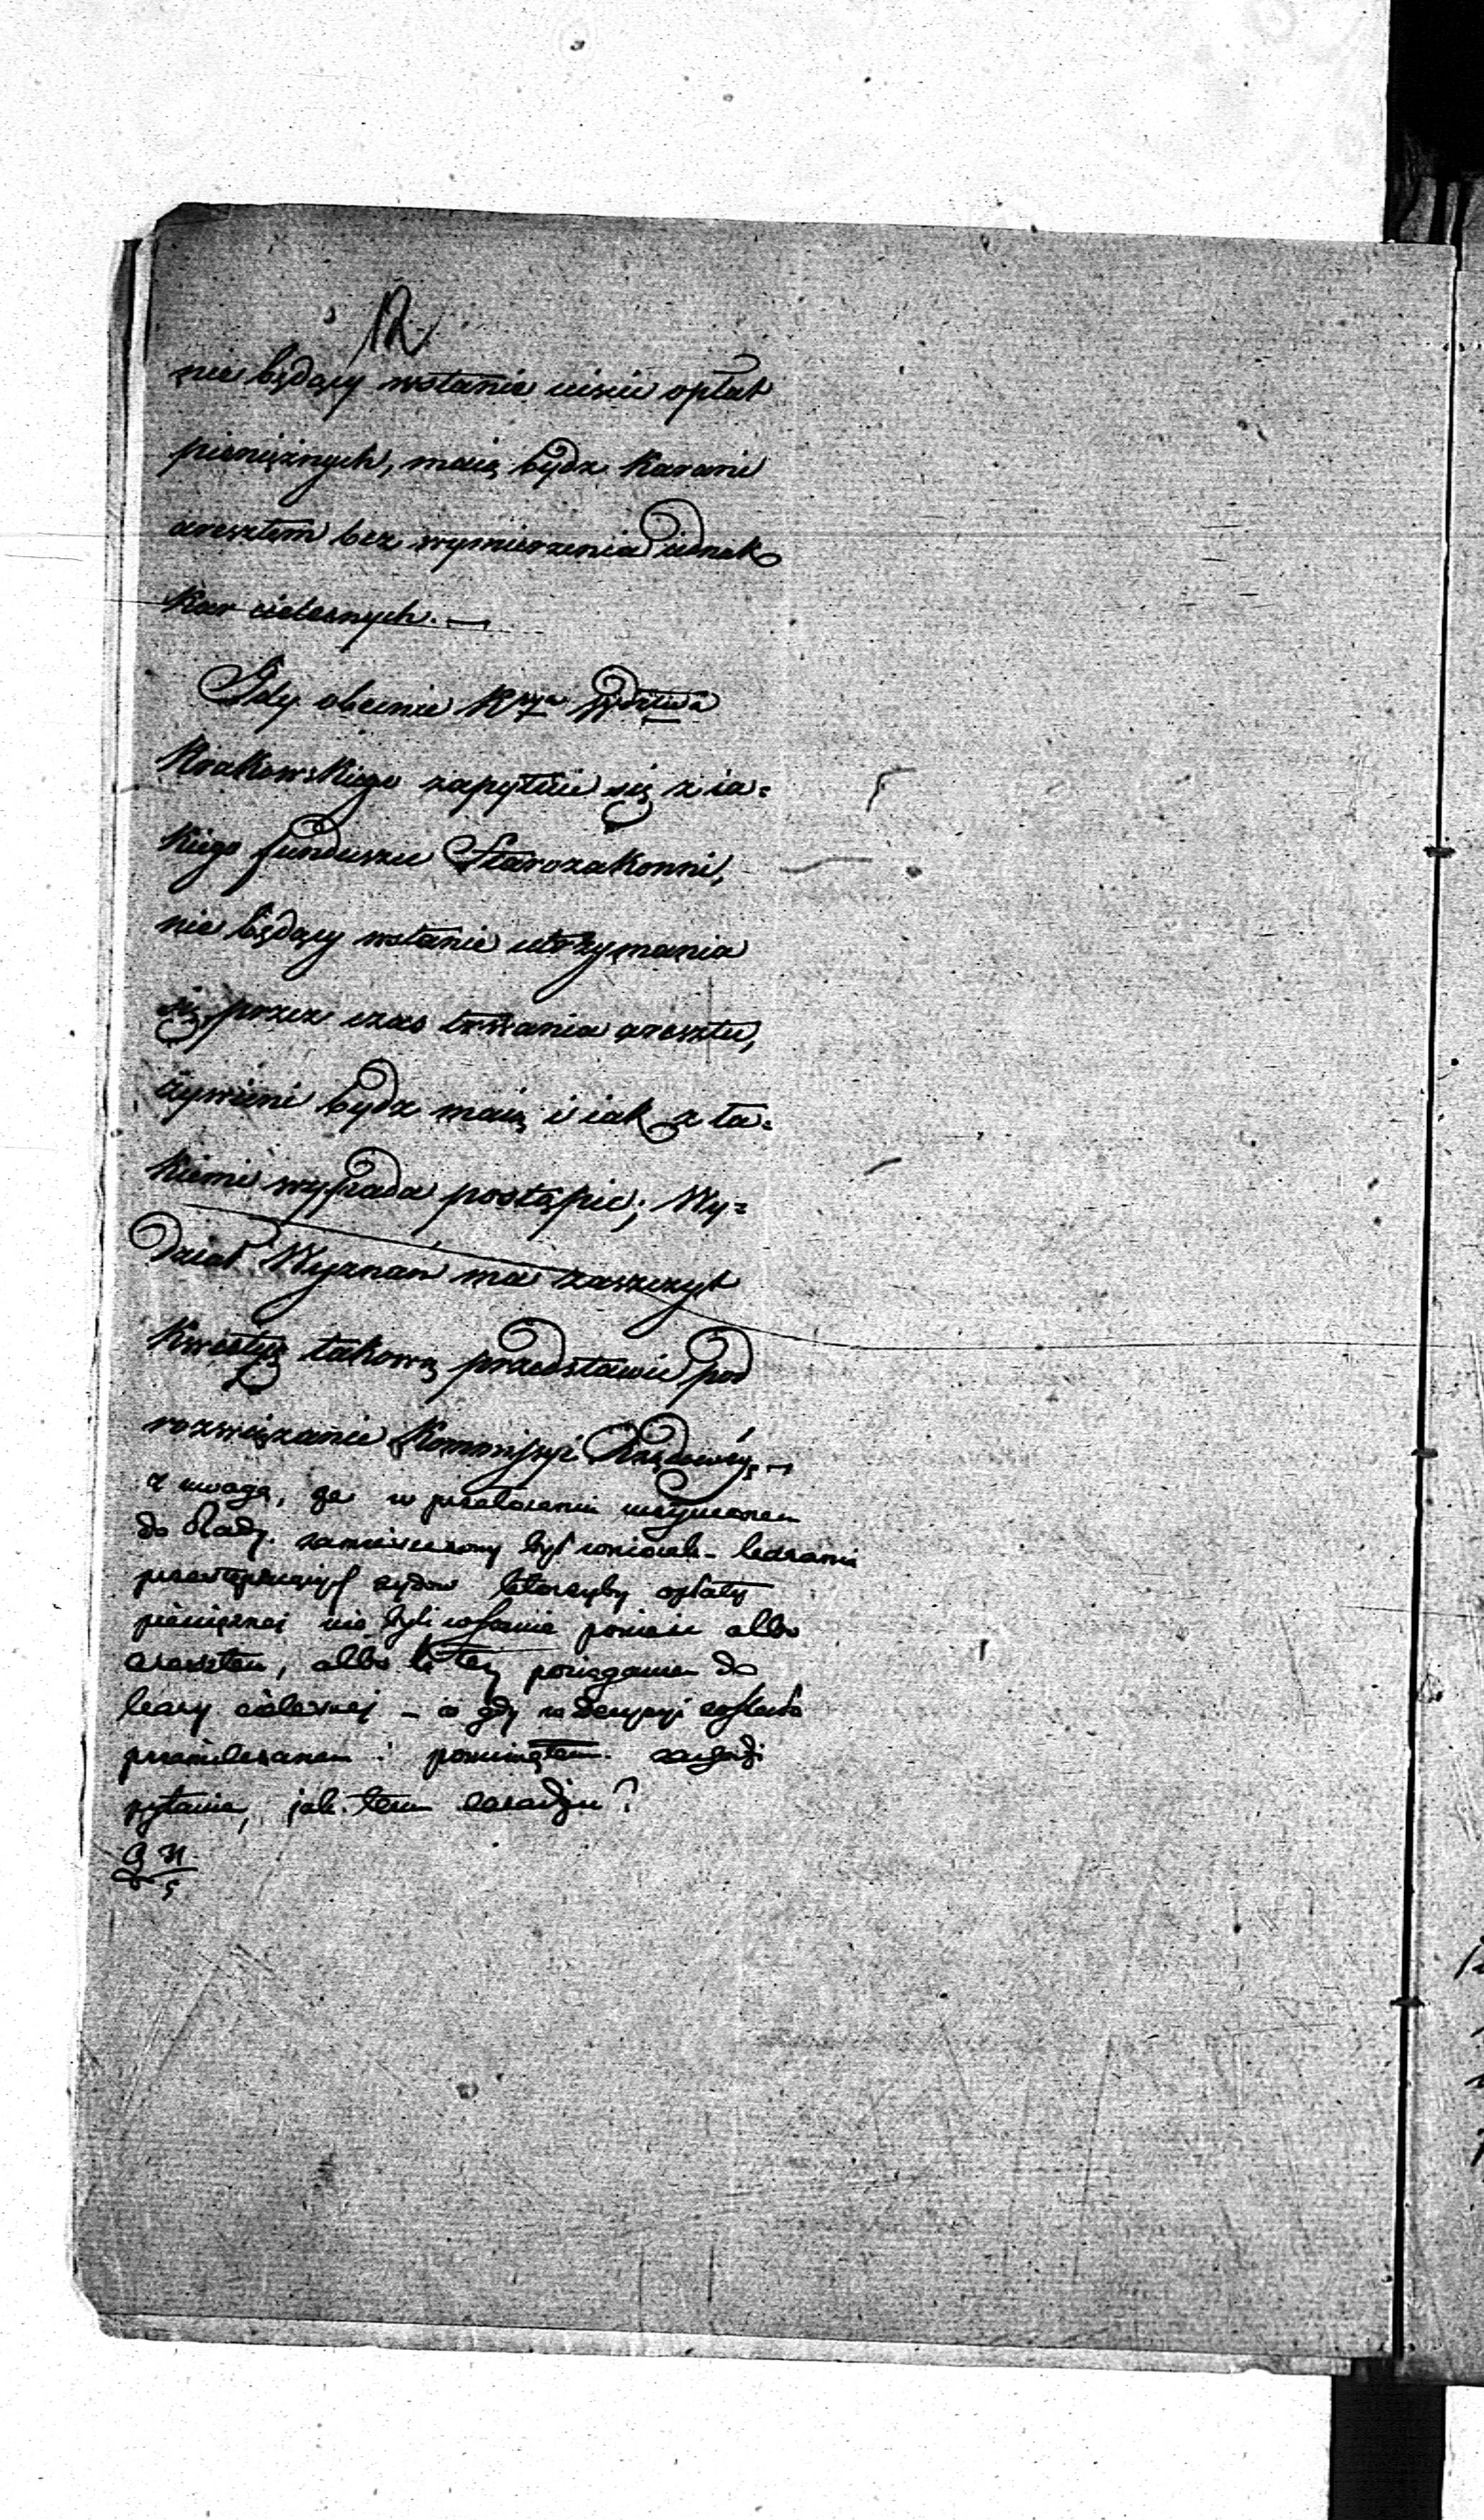 12
nie będący wstanie uiścić opłat
pieniężnych, maią bydź karani
aresztem bez wymierzenia iednak
kar cielesnych. —
Gdy obecnie Kssya Wdztwa
Krakowskiego zapytuie się z ia=
kiego funduszu Starozakonni,
nie będący wstanie utrzymania
się przez czas trwania aresztu,
żywieni bydź maią i iak z ta=
kiemi wypada postąpić; Wy=
dział Wyznań ma zaszczyt
kwestyę takową przedstawić pod
rozwiązanie Kommissyi Rządowéy. —
z uwagą, że w przełożeniu uczynionem
do Rady zamieszczony był wniosek karania
żydów którzyby opłaty
pieniężnej nie byli wstanie ponieść albo
aresztem, albo też pociąganiem do
kary cielesnej — a gdy w decyzyi zostało
i pominiętem zachodzi
pytanie, jak temu zaradzić?